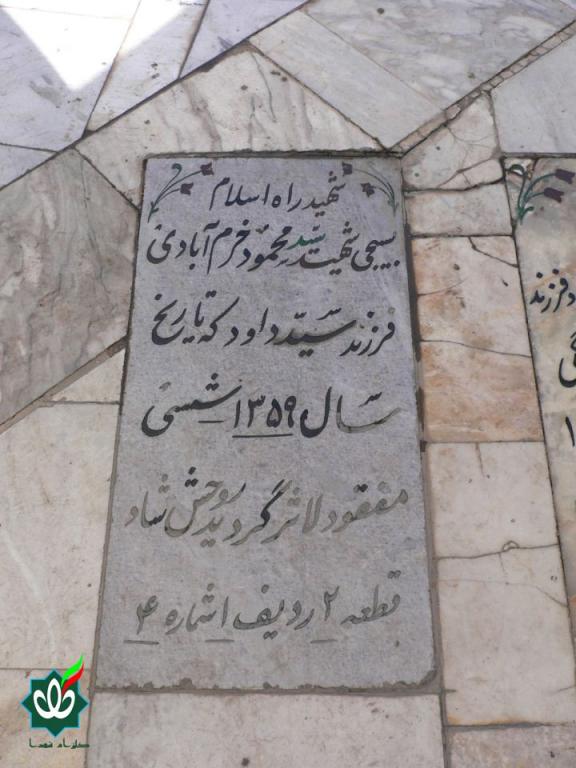 شهید راه اسلام
بسیجی شهید سید محمود خرم آبادی
فرزند سیّد داود که تاریخ
سال ۱۳۵۹ شمسی
مفقود لاثر گردید روحش شاد
قطعه ۲ ردیف ۱ شماره ۴
د فرزند
گلزار شهدا